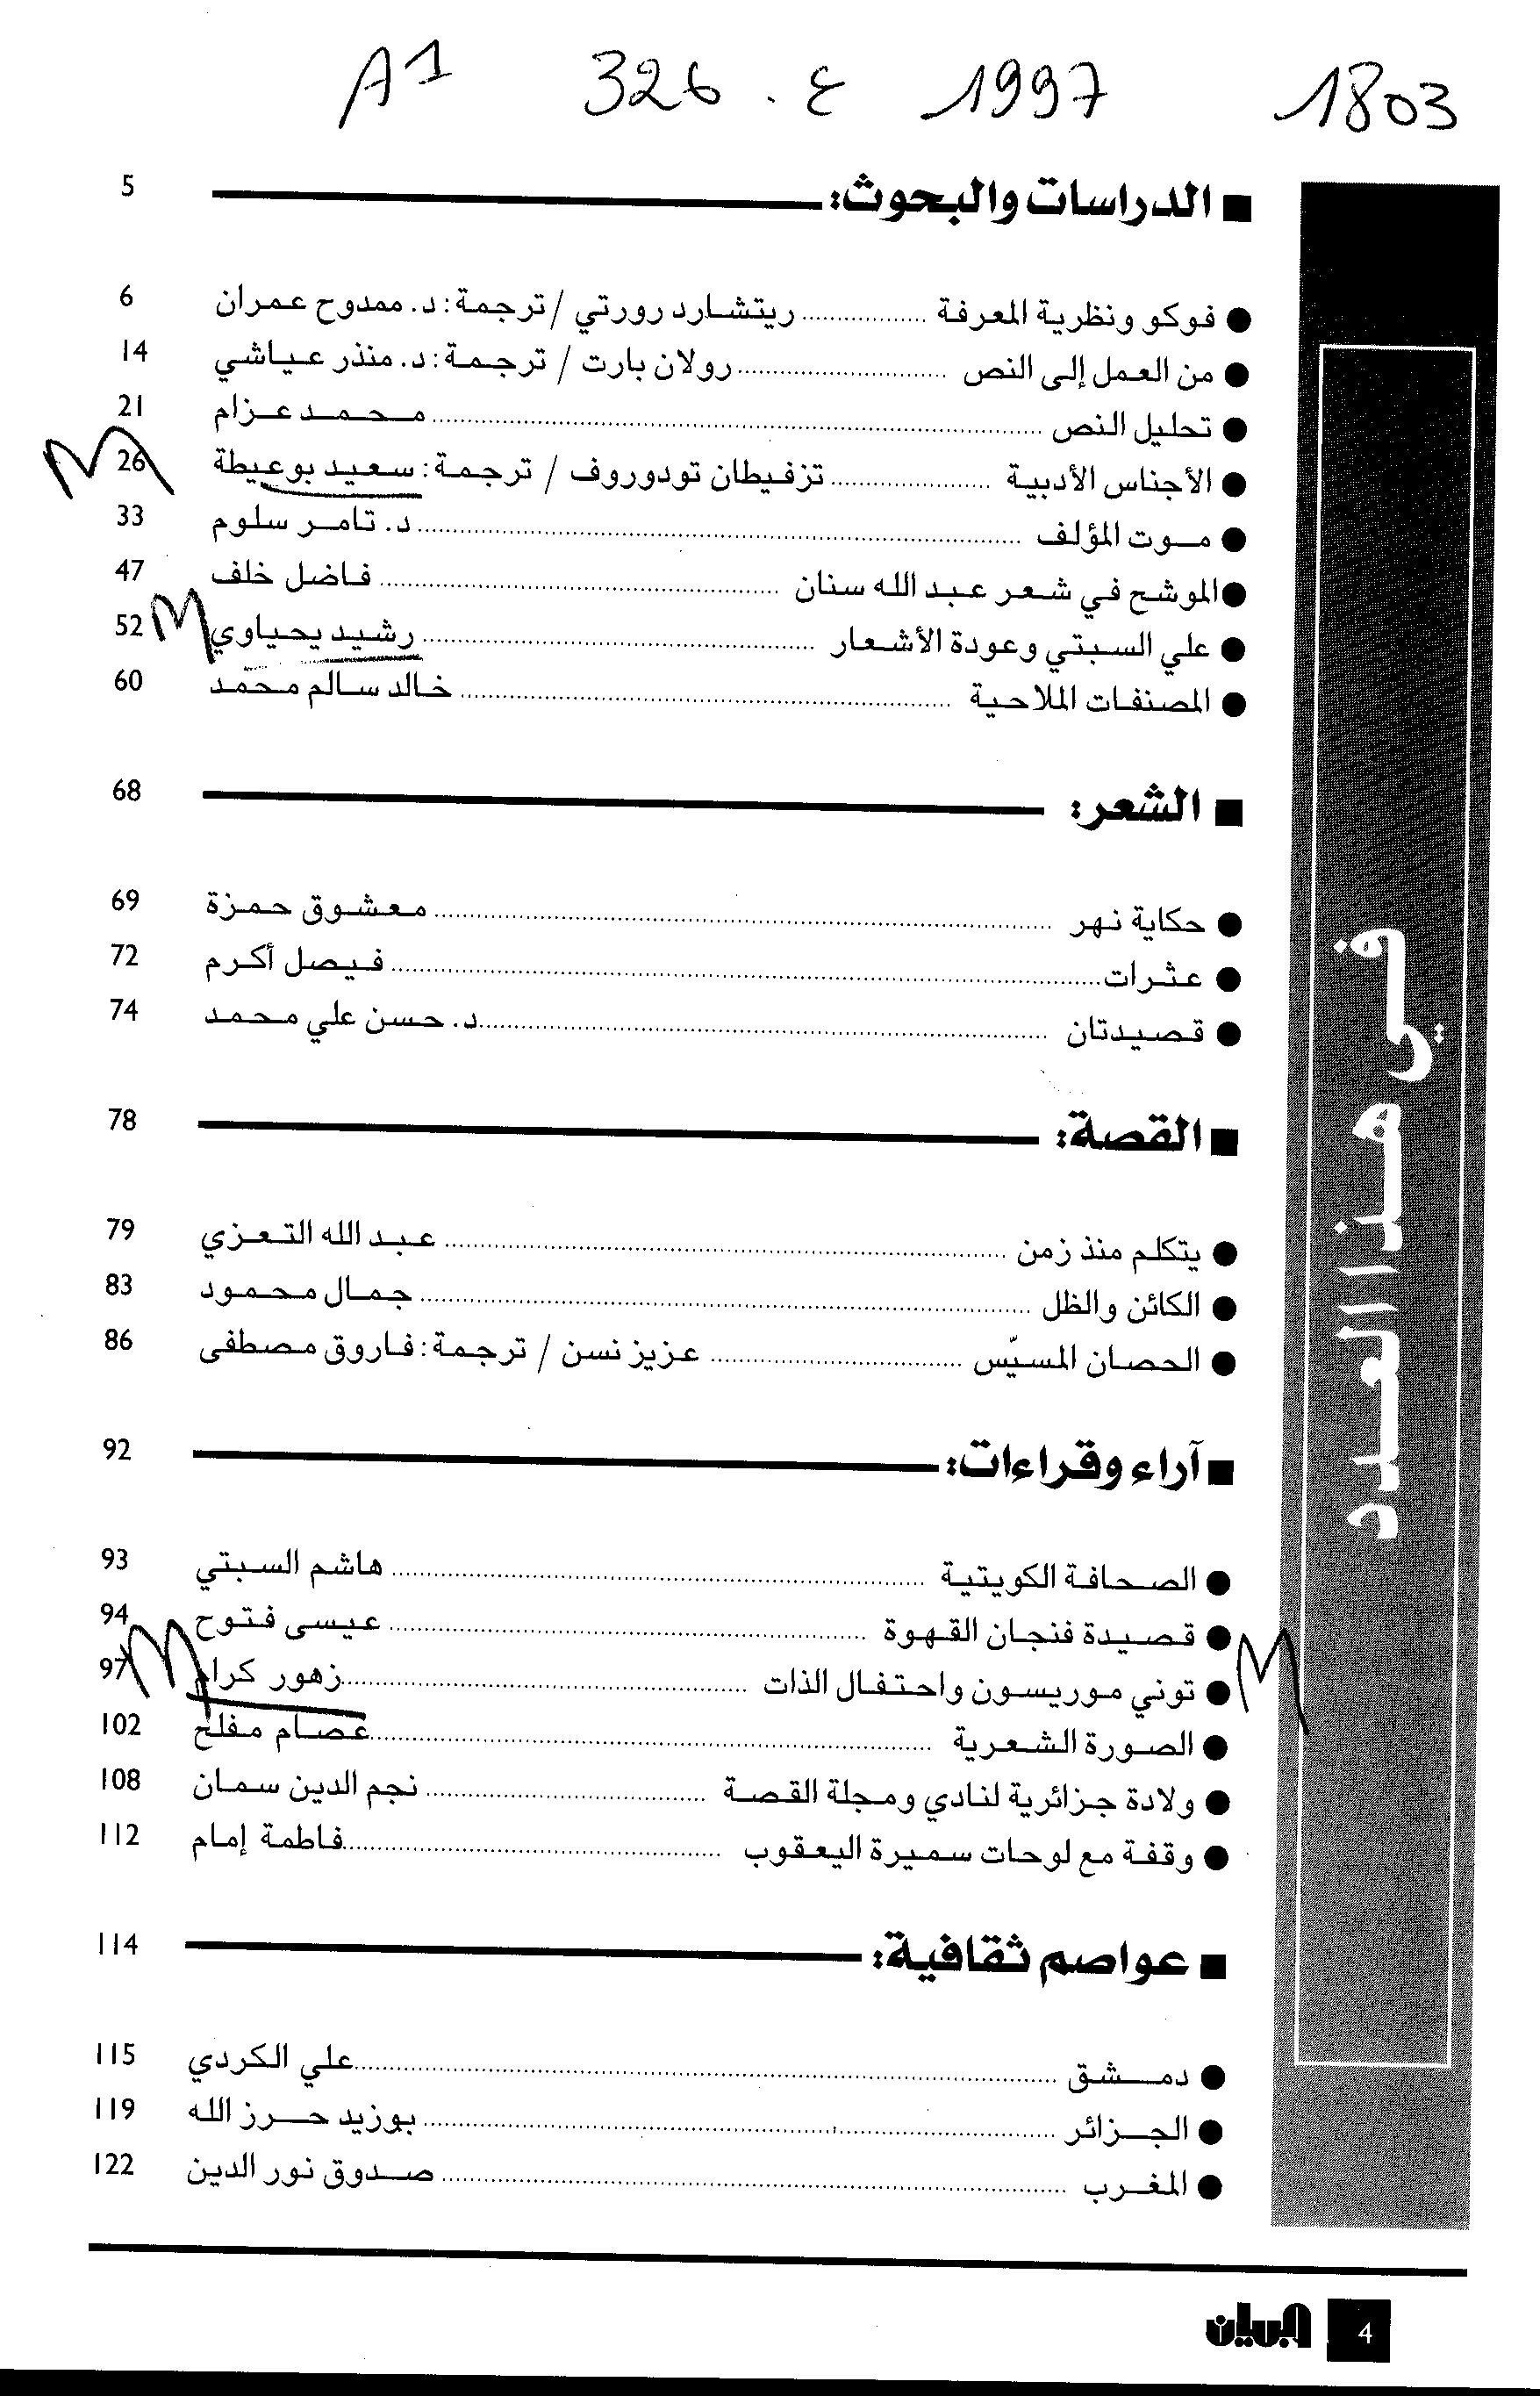 A1 326 . ع 1997 1803
■ الدراسات والبحوث: 5
● فوكو ونظرية المعرفة ................ ريتشارد رورتي / ترجمة: د. ممدوح عمران 6
● من العمل إلى النص ................ رولان بارت / ترجمة: د. منذر عياشي 14
● تحليل النص ................ محمد عزام 21
M
● الأجناس الأدبية ................ تزفيطان تودوروف / ترجمة: سعيد بوعيطة 26
● موت المؤلف ................ د. تامر سلوم 33
● الموشح في شعر عبد الله سنان ................ فاضل خلف 47
● علي السبتي وعودة الأشعار ................ رشيد يحياوي M 52
● المصنفات الملاحية ................ خالد سالم محمد 60
■ الشعر: 68
● حكاية نهر ................ معشوق حمزة 69
● عثرات ................ فيصل أكرم 72
● قصيدتان ................ د. حسن علي محمد 74
■ القصة: 78
● يتكلم منذ زمن ................ عبد الله التعزي 79
● الكائن والظل ................ جمال محمود 83
● الحصان المسيّس ................ عزيز نسن / ترجمة: فاروق مصطفى 86
■ آراء وقراءات: 92
● الصحافة الكويتية ................ هاشم السبتي 93
● قصيدة فنجان القهوة ................ عيسى فتوح 94
M ● توني موريسون واحتفال الذات ................ زهور كرام M 97
● الصورة الشعرية ................ عصام مفلح 102
● ولادة جزائرية لنادي ومجلة القصة ................ نجم الدين سمان 108
● وقفة مع لوحات سميرة اليعقوب ................ فاطمة إمام 112
■ عواصم ثقافية: 114
● دمشق ................ علي الكردي 115
● الجزائر ................ بوزيد حرز الله 119
● المغرب ................ صدوق نور الدين 122
في هذا العدد
4 البيان